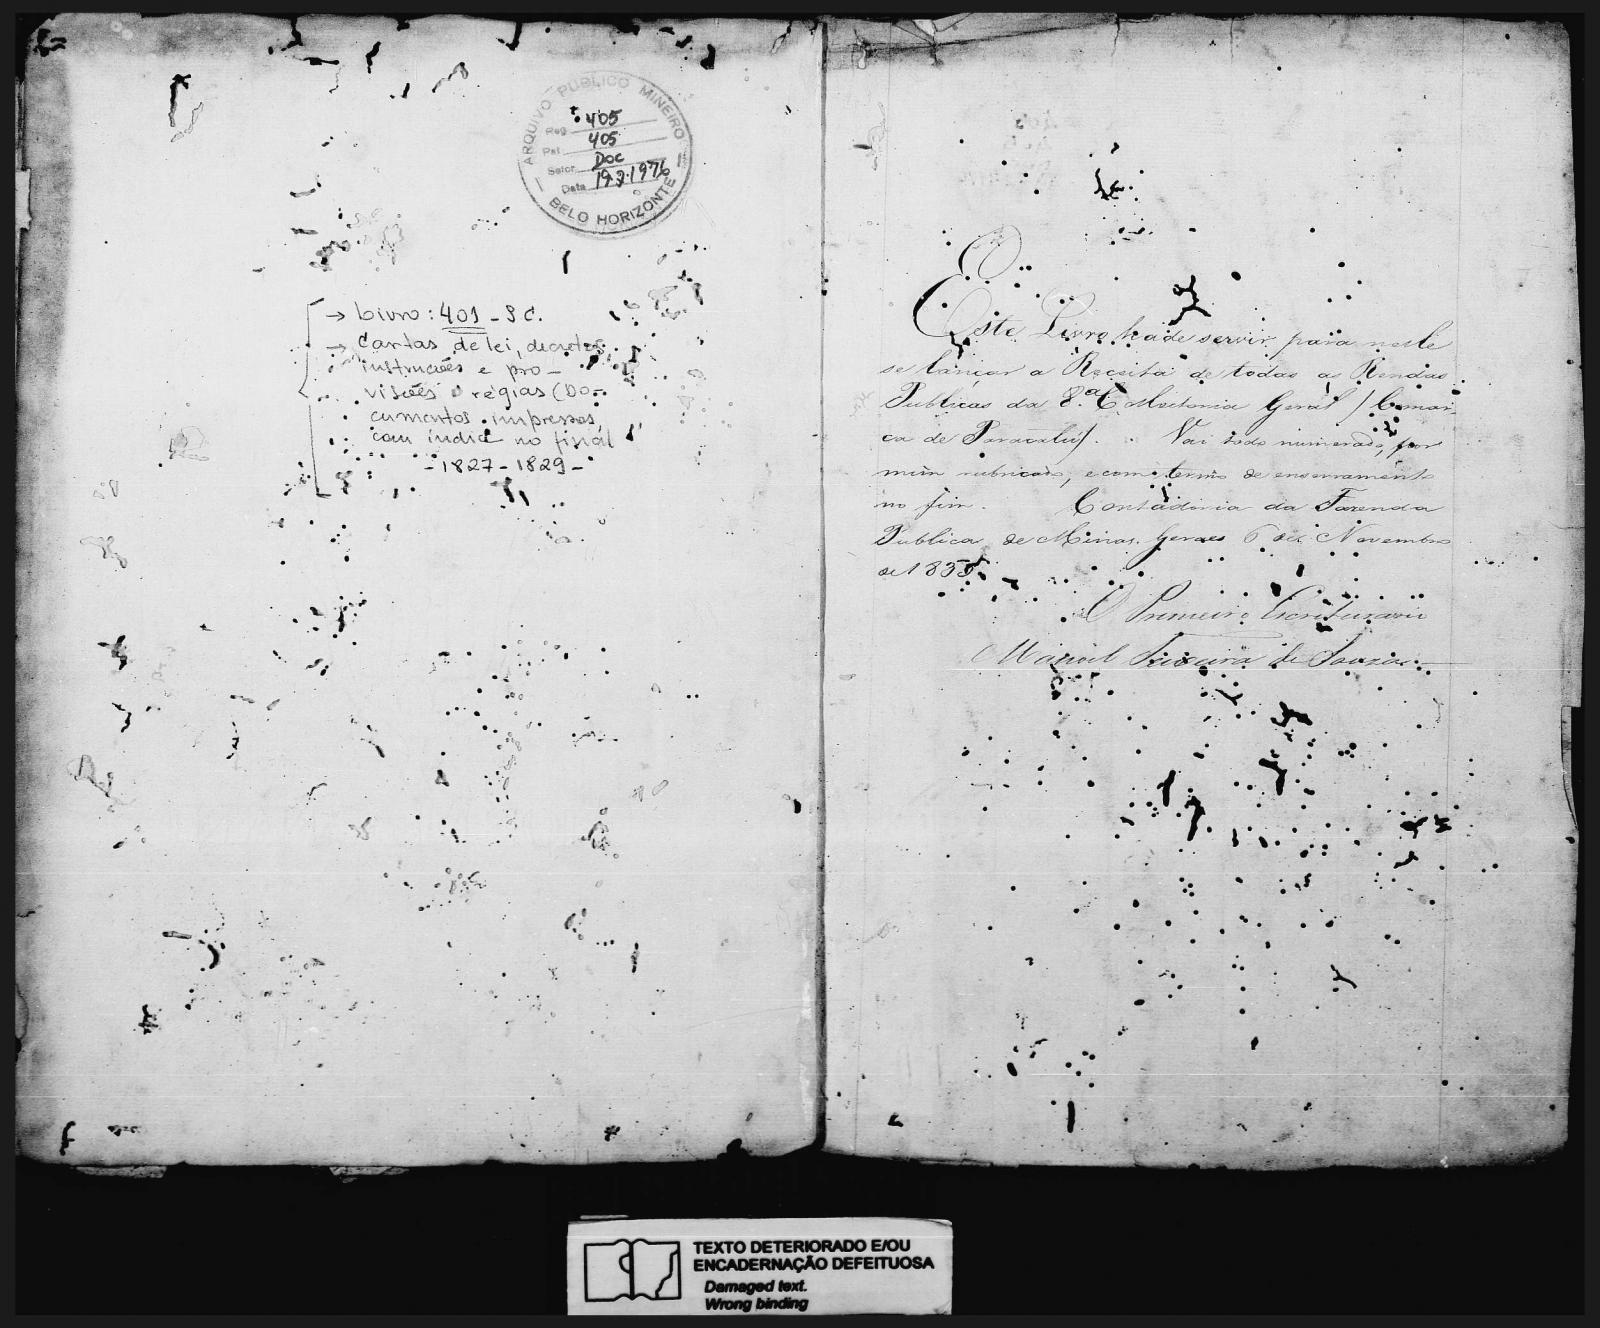 ARQUIVO PÚBLICO MINEIRO
Reg. 405
Pat. 405
Setor Doc
Data 19.3.1976
BELO HORIZONTE
→ Livro: 401 - S C.
→ Cartas de lei, decretos,
instruções e pro-
visões régias (Do-
cumentos impressos,
com índice no final
- 1827 - 1829 -
Este Livro hade servir, para nelle
se lançar a Receita de todas as Rendas
Publicas da 8.ª Colleitoria Geral (Comar-
ca de Paracatú). Vai todo numerado, por
mim rubricado, e com o termo de enserramento
no fim. Contadoria da Fazenda
Publica de Minas Geraes 6 de Novembro
de 1835
O Primeiro Escriturario
Manoel Teixeira de Souza
TEXTO DETERIORADO E/OU
ENCADERNAÇÃO DEFEITUOSA
Damaged text.
Wrong binding